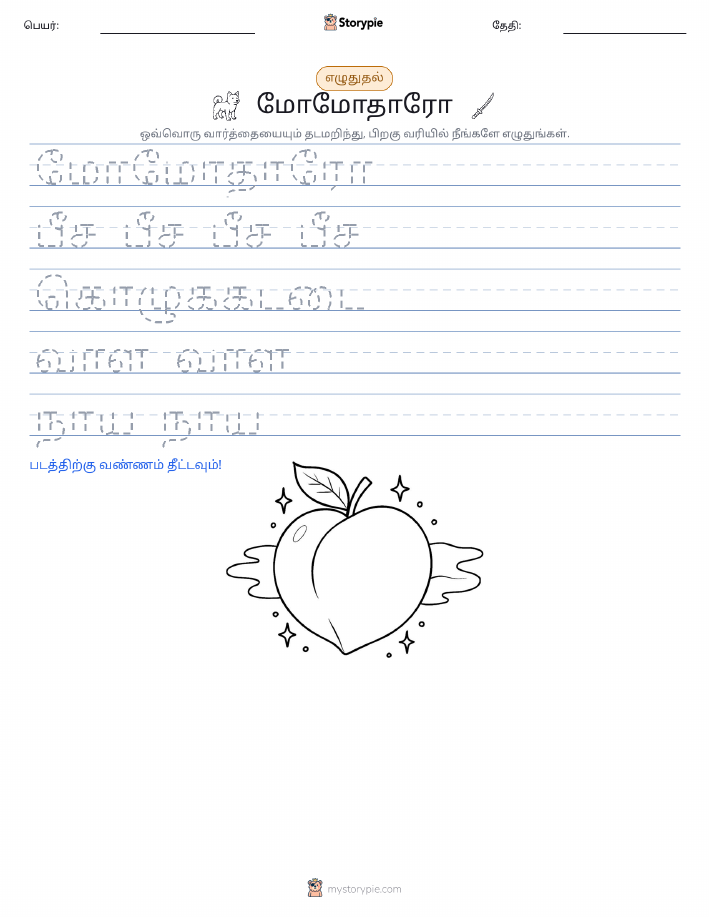 பெயர்:
Storypie
தேதி:
எழுதுதல்
மோமோதாரோ
ஒவ்வொரு வார்த்தையையும் தடமறிந்து, பிறகு வரியில் நீங்களே எழுதுங்கள்.
மோமோதாரோ
பீச பீச பீச பீச
கொழுககடடை
வாள வாள
நாய நாய
படத்திற்கு வண்ணம் தீட்டவும்!
mystorypie.com